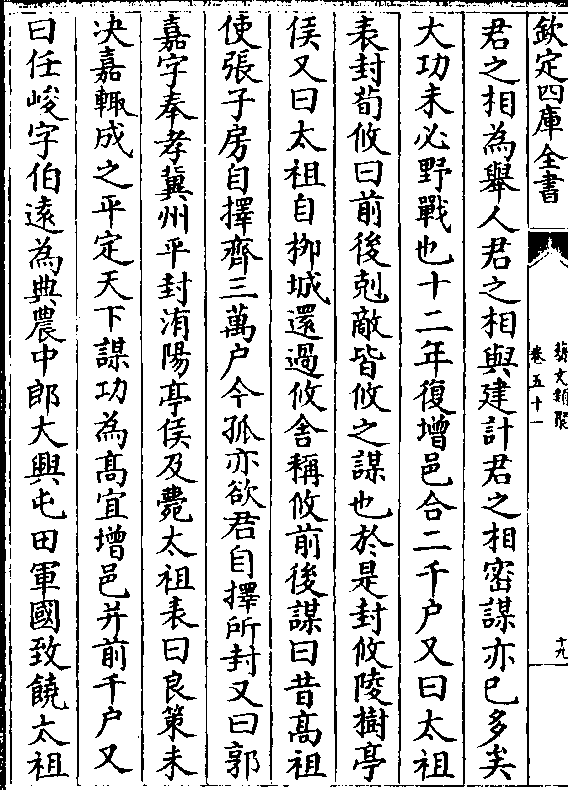 欽定四庫全書
藝文類聚
卷五十一
十九
君之相為舉人君之相與建計君之相密謀亦已多矣
大功未必野戰也十二年復增邑合二千户又曰太祖
表封荀攸曰前後剋敵皆攸之謀也於是封攸陵樹亭
侯又曰太祖自柳城還過攸舍稱攸前後謀曰昔髙祖
使張子房自擇齊三萬户今孤亦欲君自擇所封又曰郭
嘉字奉孝冀州平封洧陽亭侯及薨太祖表曰良策未
决嘉輙成之平定天下謀功為髙宜增邑并前千户又
曰任峻字伯逺為典農中郎大興屯田軍國致饒太祖